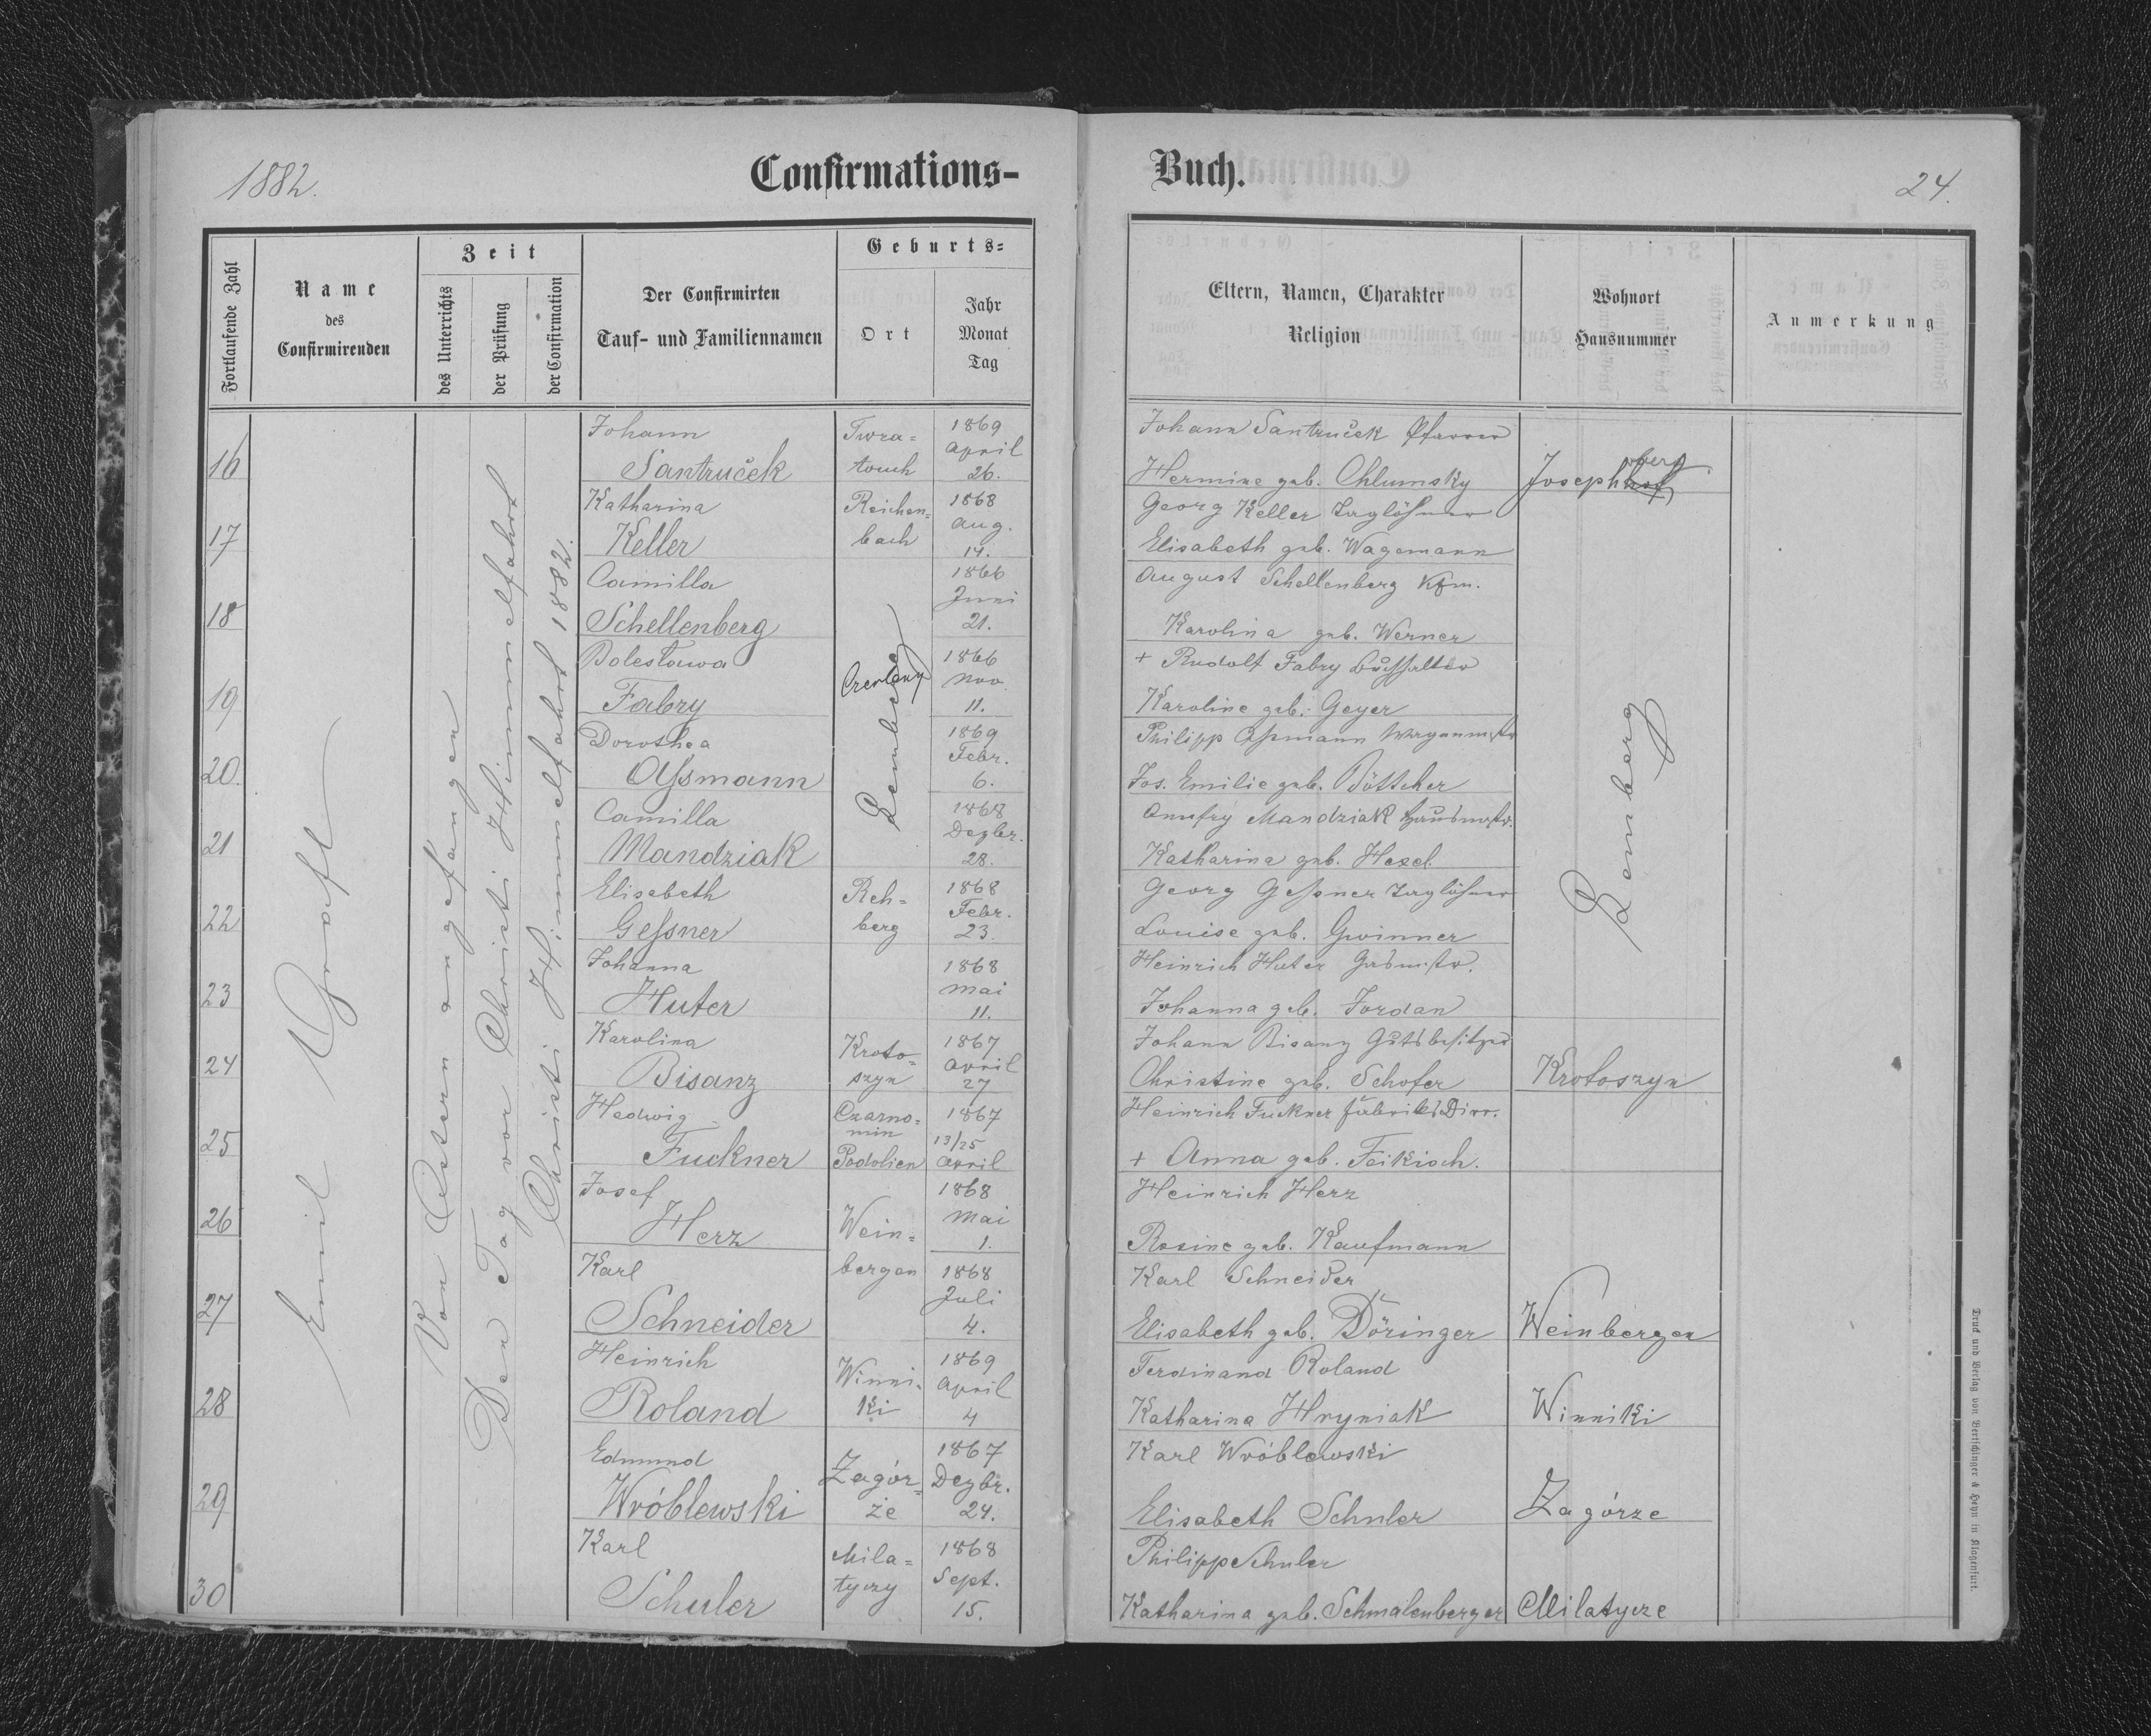 1882.
Confirmations-
Buch.
24.
Fortlaufende Zahl
Name
des
Confirmirenden
Zeit
des Unterrichts
der Prüfung
der Confirmation
Der Confirmirten
Tauf- und Familiennamen
Geburts-
Ort
Jahr
Monat
Tag
Eltern, Namen, Charakter
Religion
Wohnort
Hausnummer
Anmerkung
Emil Graft
Von Ostern angefangen
Den Tag vor Christi Himmelfahrt
Christi Himmelfahrt 1882.
16
Johann
Santruček
Twra=
touch
1869
April
26.
Johann Santruček Pfarrer
Hermine geb. Chlumsky
Josephsberg
17
Katharina
Keller
Reichen=
bach
1868
Aug.
14.
Georg Keller Taglöhner
Elisabeth geb. Wagemann
Lemberg
18
Camilla
Schellenberg
Lemberg
1866
Juni
21.
August Schellenberg Kfm.
Karolina geb. Werner
19
Bolesława
Fabry
1866
Nov.
11.
+ Rudolf Fabry Buchhalter
Karoline geb. Geyer
20.
Dorothea
Aſsmann
1869
Febr.
6.
Philipp Aſsmann Wagenmstr
Jos. Emilie geb. Böttcher
21
Camilla
Mandziak
1868
Dezbr.
28.
Onufry Mandziak Hausmstr.
Katharina geb. Hesel
22
Elisabeth
Geſsner
Reh=
berg
1868
Febr.
23.
Georg Geſsner Taglöhner
Louise geb. Gwinner
23
Johanna
Huter
1868
Mai
11.
Heinrich Huter
Johanna geb. Jordan
24
Karolina
Bisanz
Kroto=
szyn
1867
April
27
Johann Bisanz Gutsbesitzer
Christine geb. Schofer
Krotoszyn
25
Hedwig
Fuckner
Czarno=
min
Podolien
1867
13/25
April
Heinrich Fuckner Fabriks Dirr.
+ Anna geb. Feikisch.
26
Josef
Herz
Wein=
bergen
1868
Mai
1.
Heinrich Herz
Rosine geb. Kaufmann
27
Karl
Schneider
1868
Juli
4.
Karl Schneider
Elisabeth geb. Döringer
Weinbergen
28
Heinrich
Roland
Winni=
ki
1869
April
4
Ferdinand Roland
Katharina Hryniak
Winniki
29
Edmund
Wróblewski
Zagór=
że
1867
Dezbr.
24.
Karl Wróblewski
Elisabeth Schuler
Zagórze
30
Karl
Schuler
Mila=
tyczy
1868
Sept.
15.
Philipp Schuler
Katharina geb. Schmalenberger
Milatycze
Druck und Verlag von Bertschinger & Heyn in Klagenfurt.